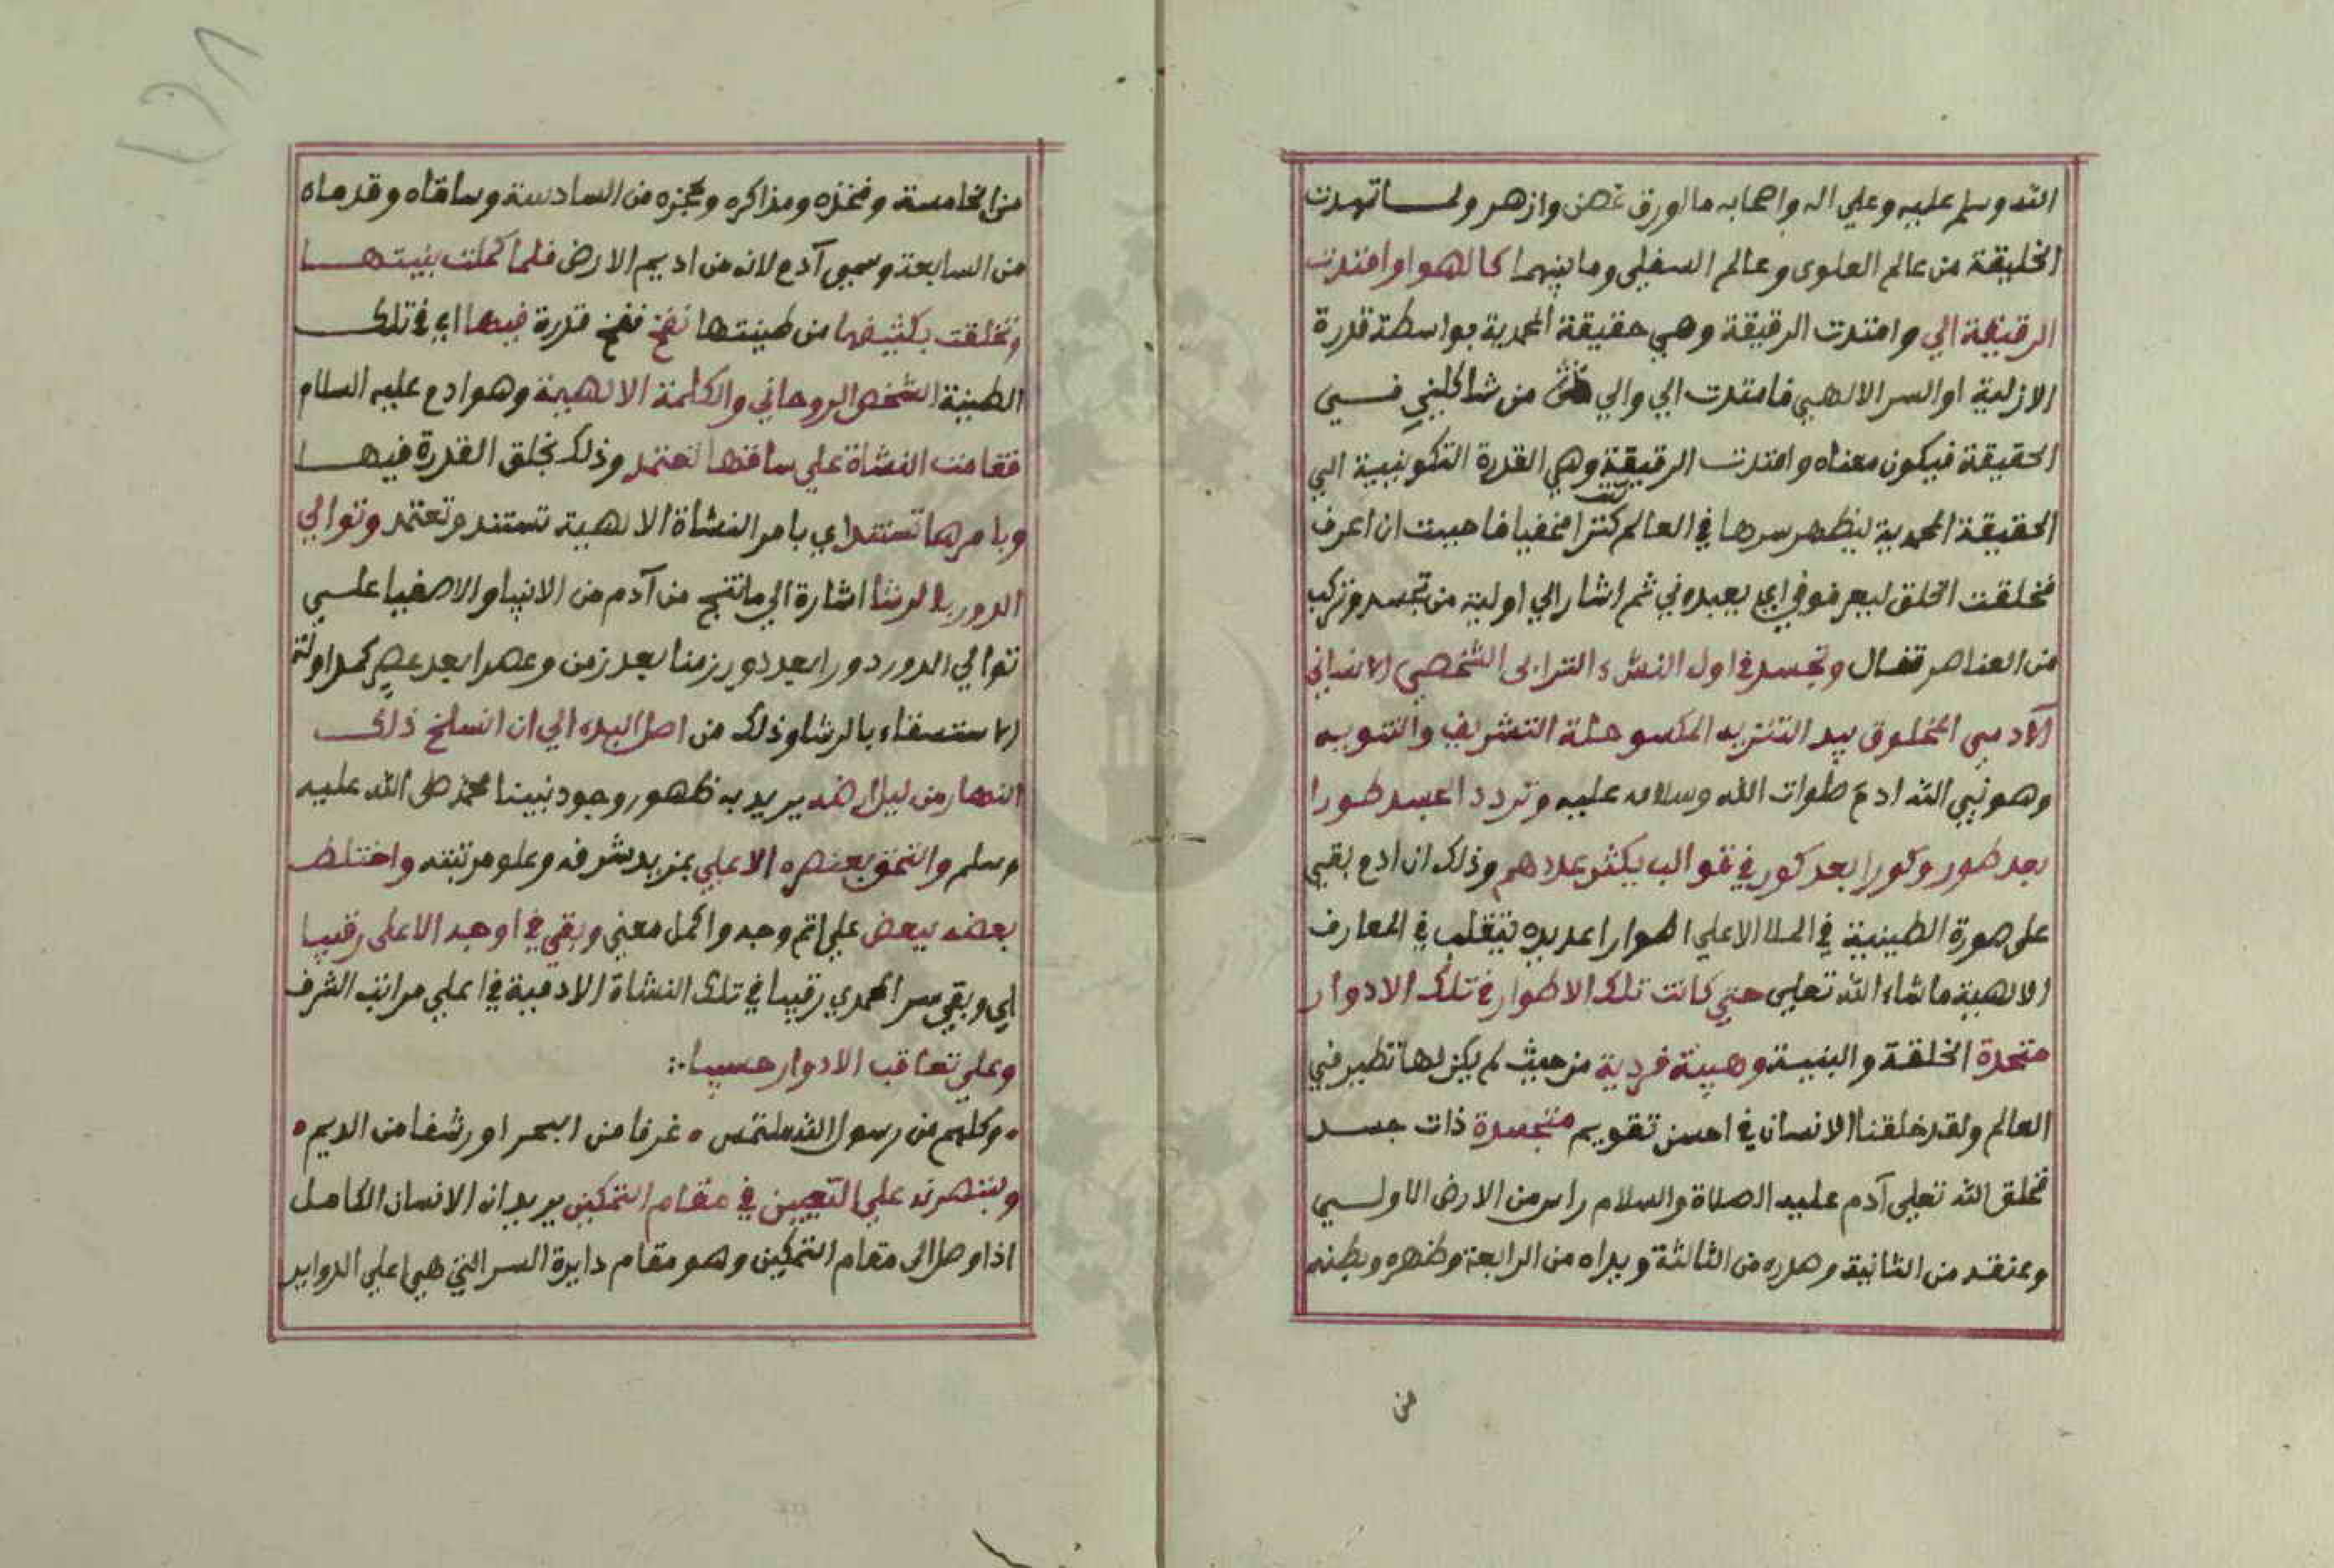 الله وسلم عليه وعلي اله واصحابه ما اورق غصن وازهر ولما تمهدت
الخليقة من عالم العلوي وعالم السفلي وما بينهما كالهوا وامتدت
الرقيقة الي وامتدت الرقيقة وهي حقيقة المحمدية بواسطة قدرة
الازلية او السر الالهي فامتدت الي والي من شاكلني فــي
الحقيقة فيكون معناه وامتدت الرقيقة وهي القدرة التكوينية الي
الحقيقة المحمدية ليظهر سرها في العالم كنت كنزا مخفيا فاحببت ان اعرف
فخلقت الخلق ليعرفوني اي يعبدوني ثم اشار الي اولية من تجسد وتركب
من العناصر فقال وتجسد في اول النشء الترابي الشخصي الانساني
الآدمي المخلوق بيد التنزيه المكسو حلة التشريف والتنويه
وهو نبي الله ادم صلوات الله وسلامه عليه وتردد اعبد طورا
بعد طور وكورا بعد كور في قوالب يكثر عددهم وذلك ان ادم بقي
علي صورة الطينية في الملا الاعلي اطوارا عديده تتقلب في المعارف
الالهية ما شاء الله تعلي حتي كانت تلك الاطوار في تلك الادوار
متحدة الخلقة والبنية وهيئة فردية من حيث لم يكن لها نظير في
العالم ولقد خلقنا الانسان في احسن تقويم متجسدة ذات جسد
فخلق الله تعلي آدم عليه الصلاة والسلام راس من الارض الاولــي
وعنقه من الثانية وصدره من الثالثة ويداه من الرابعة وظهره وبطنه
من
من الخامسة وفخذه ومذاكره وعجزه من السادسة وساقاه وقدماه
من السابعة وسمي آدم لانه من اديم الارض فلما كملت بنيتهــا
وتخلقت بكثيفها من طينتها نفخ نفخ قدرة فيها اي في تلك
الطينة الشخص الروحاني والكلمة الالهية وهو ادم عليه السلام
فقامت النشاة علي ساقها تعتمد وذلك بخلق القدرة فيهــا
وبامرها تستند اي بامر النشاة الالهية تستند وتعتمد وتوالي
الدور بالرشا اشارة الي ما نتج من آدم من الانبيا والاصفيا علــي
توالي الدور دورا بعد دور زمنا بعد زمن وعصرا بعد عصر
الاستسقاء بالرشا وذلك من اصل البدء الي ان انسلخ ذلك
النهار من ليل ارضه يريد به ظهور وجود نبينا محمد صلى الله عليه
وسلم والتحق بعنصره الاعلي بمزيد شرفه وعلو مرتبته واختلط
بعضه ببعض علي اتم وجه واكمل معني وبقي في اوجه الاعلي رقيبا
اي وبقي سر المحمدي رقيبا في تلك النشاة الادمية في اعلي مراتب الشرف
وعلي تعاقب الادوار حسيبا
وكلهم من رسول الله ملتمس غرفا من البحر او رشفا من الديم
علي التعيين في مقام التمكين يريد ان الانسان الكامل
اذا وصل الى مقام التمكين وهو مقام دايرة السر التي هي اعلي الدواير